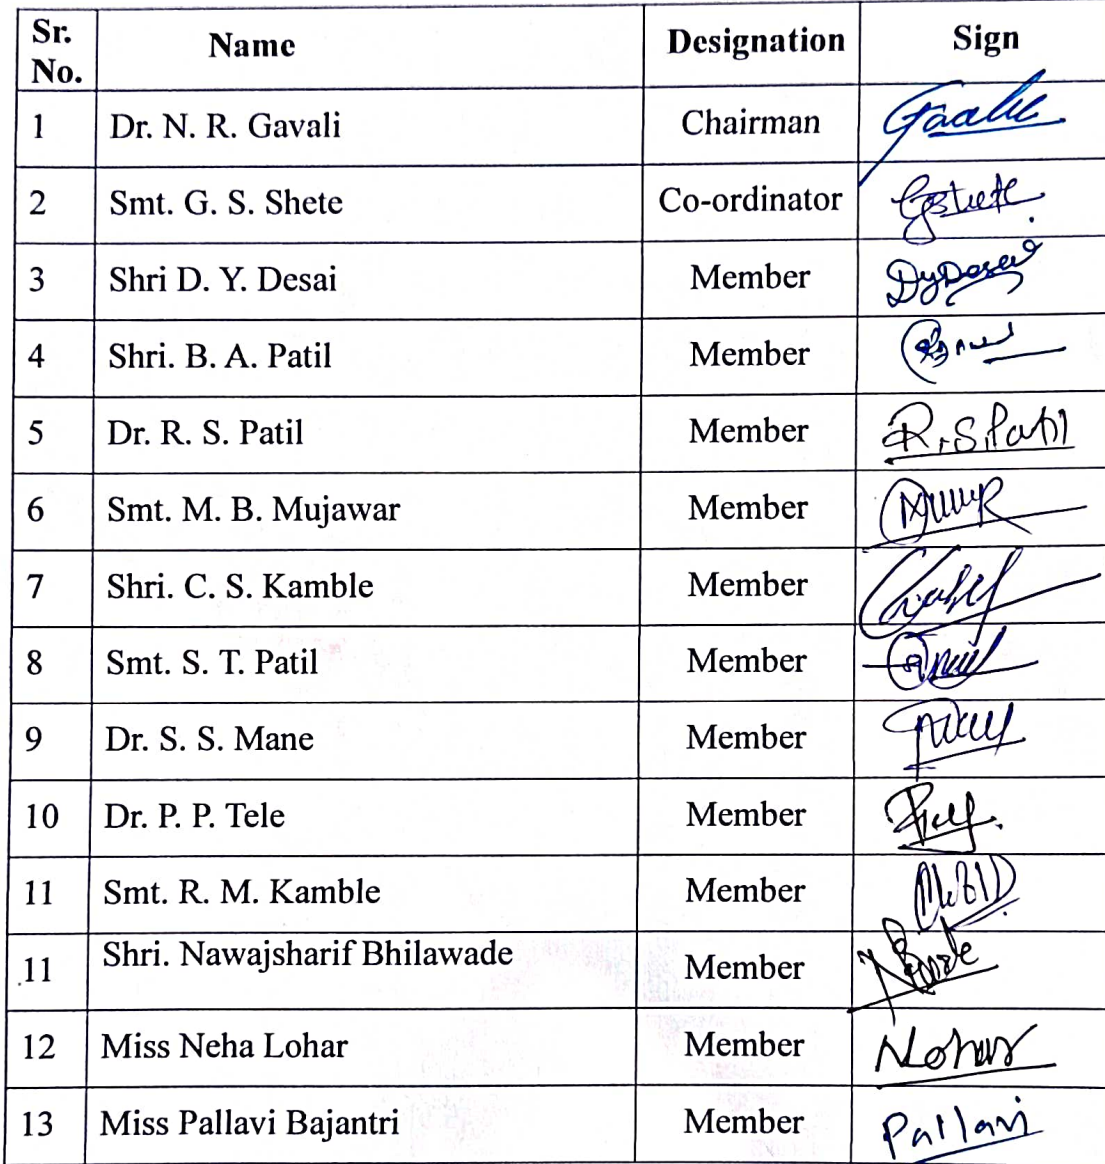 Sr. No. Name Designation Sign
1 Dr. N. R. Gavali Chairman
2 Smt. G. S. Shete Co-ordinator GSShete
3 Shri D. Y. Desai Member DyDesai
4 Shri. B. A. Patil Member
5 Dr. R. S. Patil Member R.S.Patil
6 Smt. M. B. Mujawar Member
7 Shri. C. S. Kamble Member
8 Smt. S. T. Patil Member
9 Dr. S. S. Mane Member
10 Dr. P. P. Tele Member
11 Smt. R. M. Kamble Member
11 Shri. Nawajsharif Bhilawade Member
12 Miss Neha Lohar Member NLohar
13 Miss Pallavi Bajantri Member Pallavi